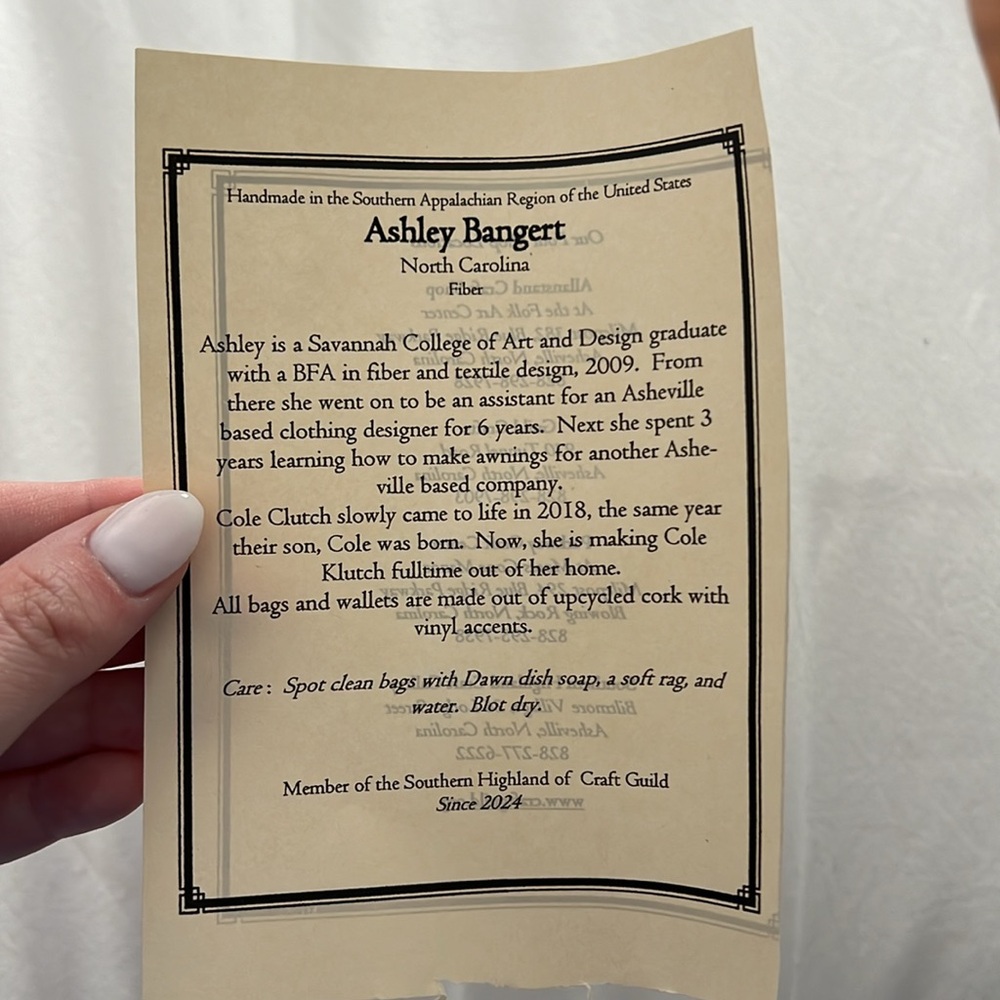 Handmade in the Southern Appalachian Region of the United States
Ashley Bangert
North Carolina
Fiber
Ashley is a Savannah College of Art and Design graduate
with a BFA in fiber and textile design, 2009. From
there she went on to be an assistant for an Asheville
based clothing designer for 6 years. Next she spent 3
years learning how to make awnings for another Ashe-
ville based company.
Cole Clutch slowly came to life in 2018, the same year
their son, Cole was born. Now, she is making Cole
Klutch fulltime out of her home.
All bags and wallets are made out of upcycled cork with
vinyl accents.
Care: Spot clean bags with Dawn dish soap, a soft rag, and
water. Blot dry.
Member of the Southern Highland of Craft Guild
Since 2024